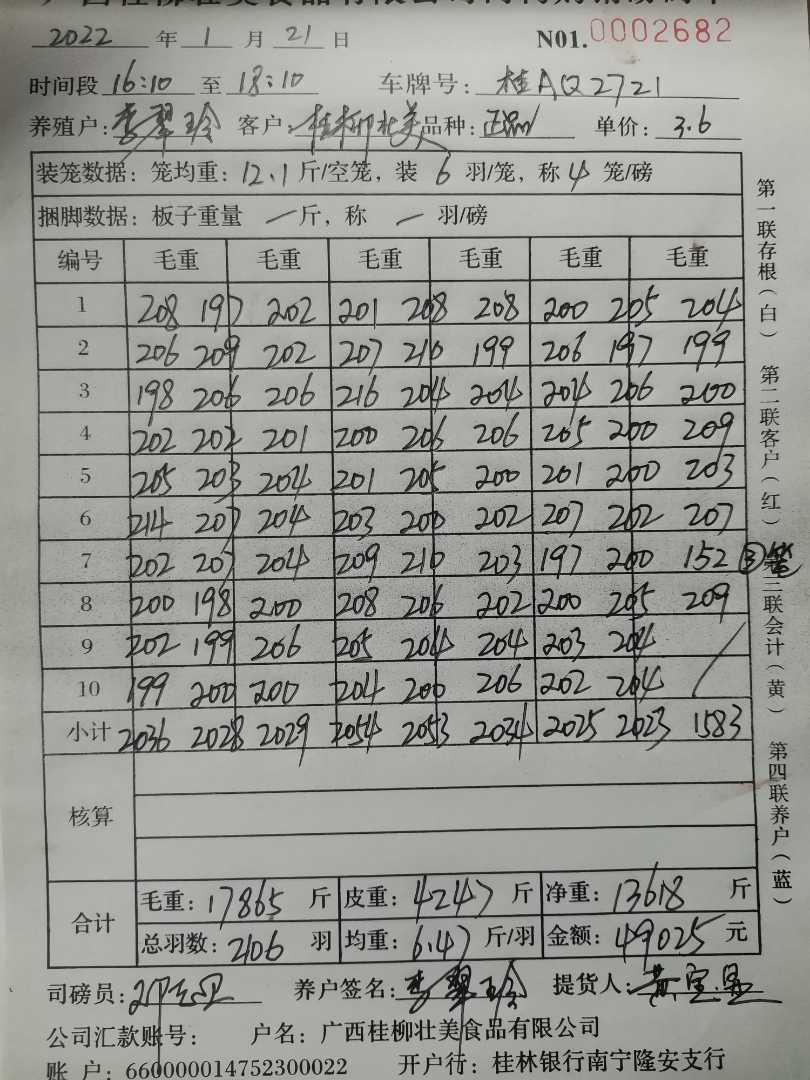 广西桂柳壮美食品有限公司
2022 年 1 月 21 日 N01.0002682
时间段 16:10 至 18:10 车牌号: 桂AQ2721
养殖户: 李翠玲 客户: 桂柳壮美 品种: 正品 单价: 3.6
装笼数据: 笼均重: 12.1 斤/空笼, 装 6 羽/笼, 称 4 笼/磅
捆脚数据: 板子重量 一 斤, 称 一 羽/磅
编号 毛重 毛重 毛重 毛重 毛重 毛重
1 208 197 202 201 208 208 200 205 204
2 206 209 202 207 210 199 206 197 199
3 198 206 206 216 204 204 204 206 200
4 202 202 201 200 206 206 205 200 209
5 205 203 204 201 205 200 201 200 203
6 214 207 204 203 200 202 207 202 207
7 202 207 204 209 210 203 197 200 152 ③笼
8 200 198 200 208 206 202 200 205 209
9 202 199 206 205 204 204 203 204
10 199 200 200 204 200 206 202 204
小计 2036 2028 2029 2054 2053 2034 2025 2023 1583
核算
合计 毛重: 17865 斤 皮重: 4247 斤 净重: 13618 斤
总羽数: 2106 羽 均重: 6.47 斤/羽 金额: 49025 元
司磅员: 养户签名: 李翠玲 提货人:
公司汇款账号: 户名: 广西桂柳壮美食品有限公司
账 户: 660000014752300022 开户行: 桂林银行南宁隆安支行
第一联存根(白) 第二联客户(红) 第三联会计(黄) 第四联养户(蓝)